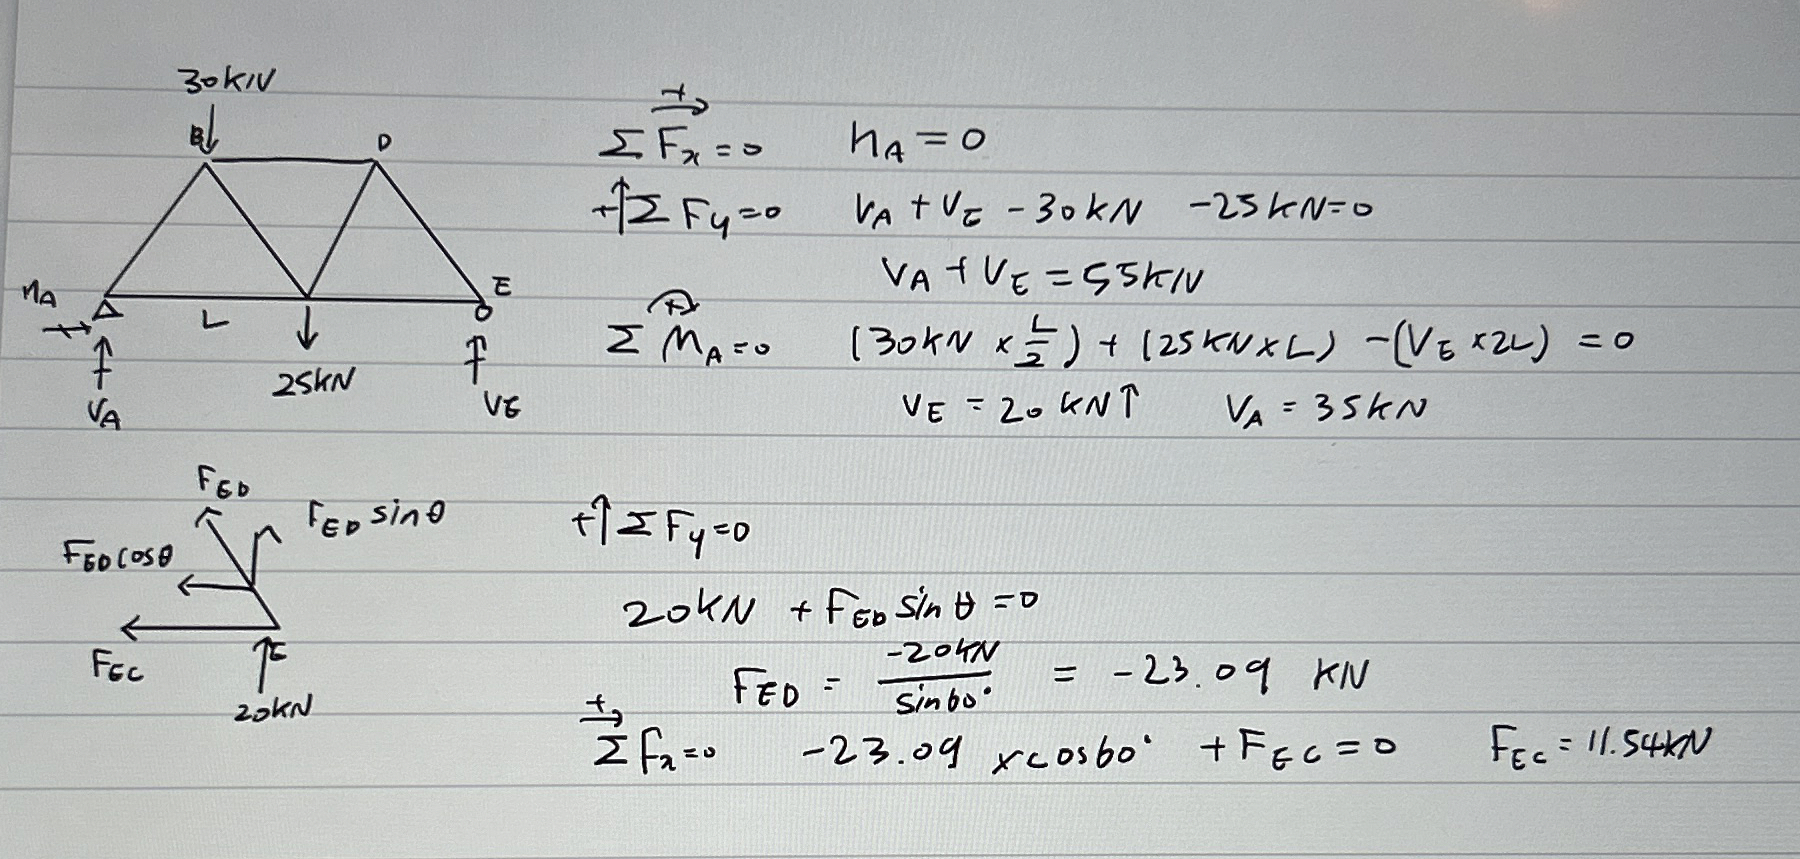 30kN
B D
H_A E
L
V_A 25kN V_E
ΣF_x=0 H_A=0
+↑ΣF_y=0 V_A+V_E-30kN -25kN=0
V_A+V_E=55kN
ΣM_A=0 (30kN×L/2)+(25kN×L)-(V_E×2L)=0
V_E=20kN↑ V_A=35kN
F_ED
F_ED sinθ
F_ED cosθ
F_EC E
20kN
+↑ΣF_y=0
20kN+F_ED sinθ=0
F_ED=-20kN/sin60°=-23.09 kN
+→
ΣF_x=0 -23.09×cos60°+F_EC=0 F_EC=11.54kN